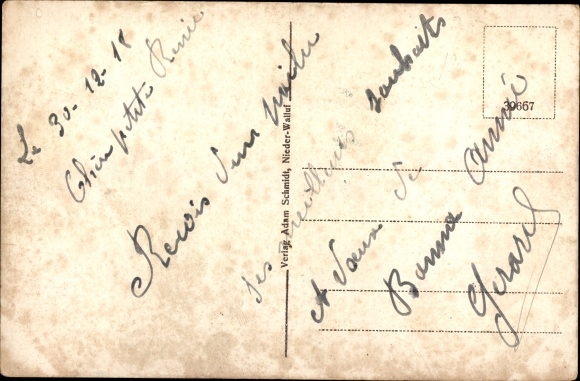 Le 30-12-18
Chère petite Renée
Recois d'un
ses meilleurs souhaits
et voeux de
Bonne année
Gerard
Verlag Adam Schmidt, Nieder-Walluf
39667